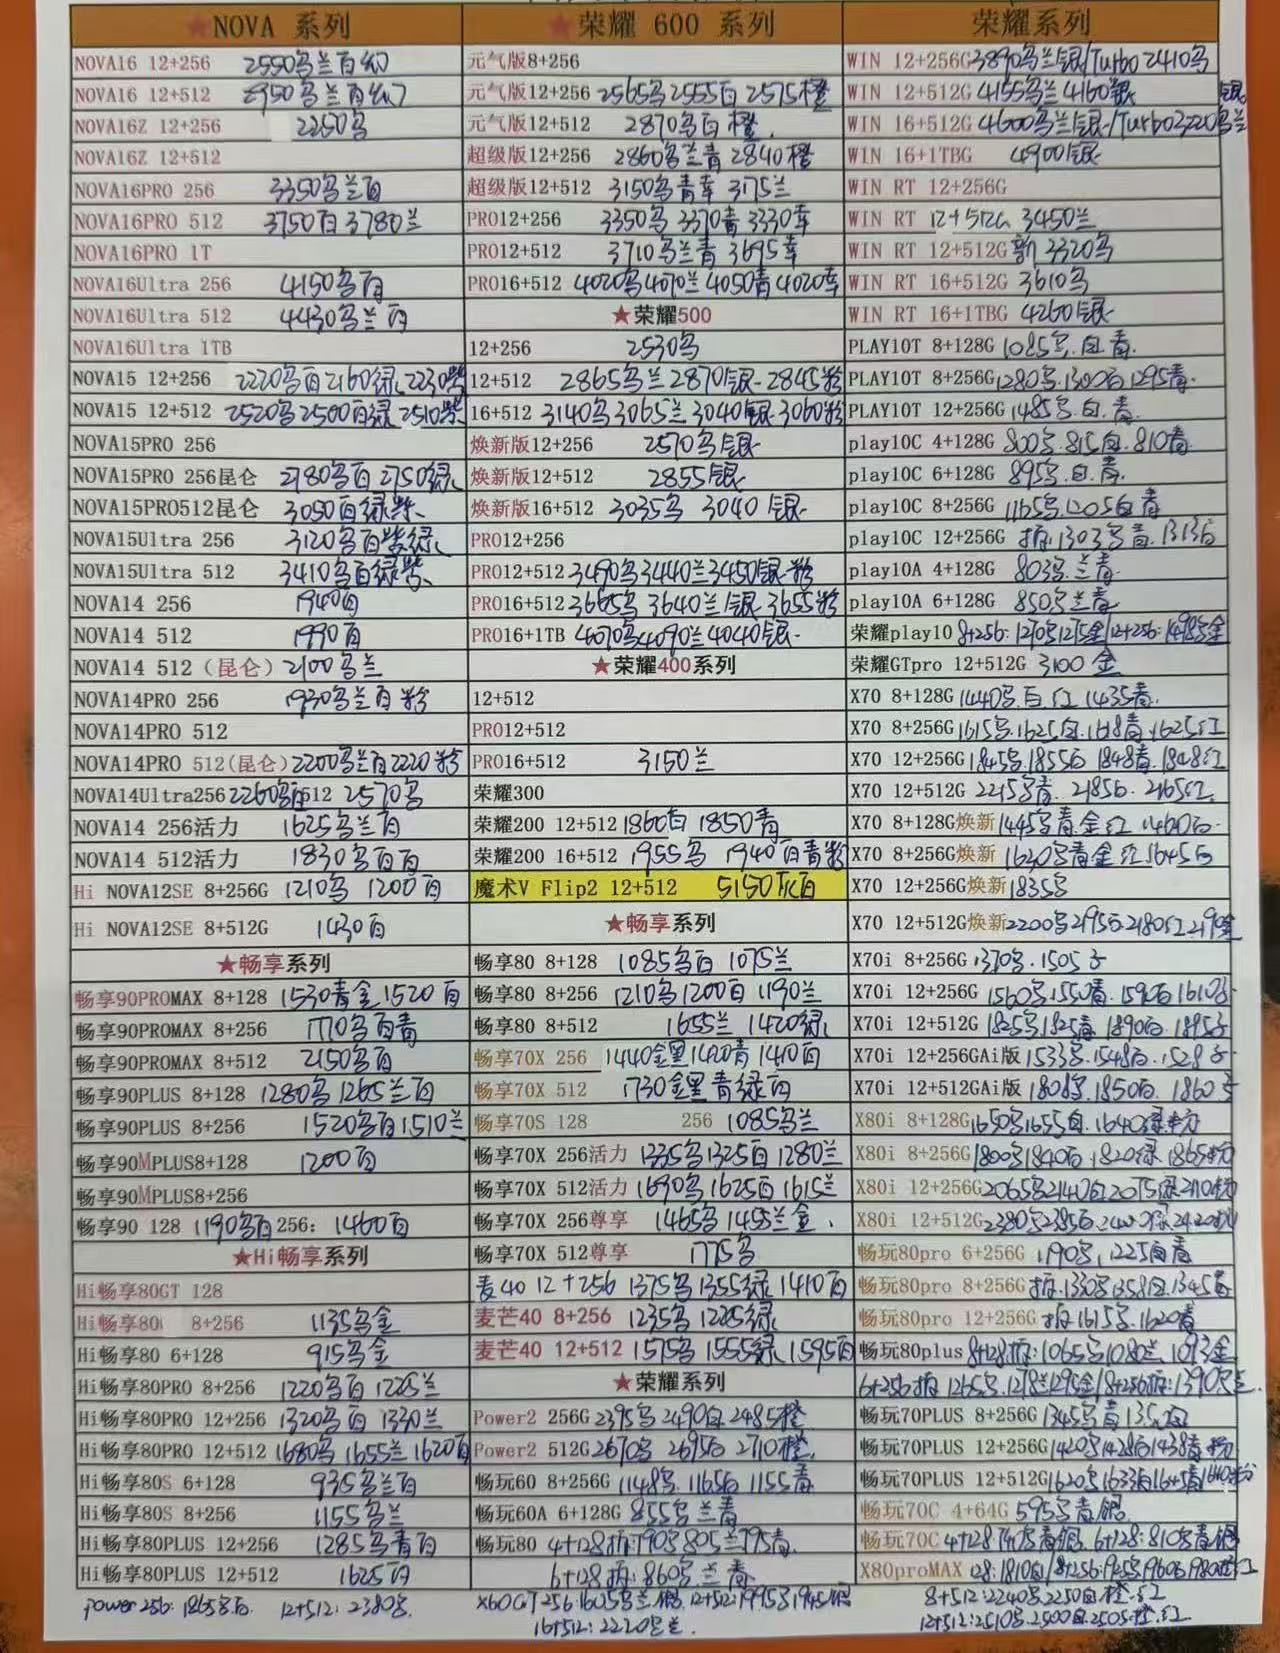 ★NOVA 系列
NOVA16 12+256 2550乌兰白幻
NOVA16 12+512 2950乌兰白幻
NOVA16Z 12+256 2250乌
NOVA16Z 12+512
NOVA16PRO 256 3350乌兰白
NOVA16PRO 512 3750白 3780兰
NOVA16PRO 1T
NOVA16Ultra 256 4150乌白
NOVA16Ultra 512 4430乌兰白
NOVA16Ultra 1TB
NOVA15 12+256 2220乌白2160绿 2230紫
NOVA15 12+512 2520乌2500白绿 2510紫
NOVA15PRO 256
NOVA15PRO 256昆仑 2780乌白 2750绿
NOVA15PRO512昆仑 3050白绿紫
NOVA15Ultra 256 3120乌白紫绿
NOVA15Ultra 512 3410乌白绿紫
NOVA14 256 1940白
NOVA14 512 1990白
NOVA14 512（昆仑）2100乌兰
NOVA14PRO 256 1930乌兰白粉
NOVA14PRO 512
NOVA14PRO 512(昆仑) 2200乌兰白2220粉
NOVA14Ultra256 2260乌白512 2570乌
NOVA14 256活力 1625乌兰白
NOVA14 512活力 1830乌白
Hi NOVA12SE 8+256G 1210乌 1200白
Hi NOVA12SE 8+512G 1430白
★畅享系列
畅享90PROMAX 8+128 1530青金 1520白
畅享90PROMAX 8+256 1770乌白青
畅享90PROMAX 8+512 2150乌白
畅享90PLUS 8+128 1280乌 1265兰白
畅享90PLUS 8+256 1520乌白1510兰
畅享90MPLUS8+128 1200白
畅享90MPLUS8+256
畅享90 128 1190乌白 256: 1460白
★Hi畅享系列
Hi畅享80GT 128
Hi畅享80 8+256 1135乌金
Hi畅享80 6+128 915乌金
Hi畅享80PRO 8+256 1220乌白 1225兰
Hi畅享80PRO 12+256 1320乌白 1330兰
Hi畅享80PRO 12+512 1680乌 1655兰 1620白
Hi畅享80S 6+128 935乌兰白
Hi畅享80S 8+256 1155乌兰
Hi畅享80PLUS 12+256 1285乌青白
Hi畅享80PLUS 12+512 1625白
power 256: 1865乌白. 12+512: 2380乌.
★荣耀 600 系列
元气版8+256
元气版12+256 2565乌2555白 2575橙
元气版12+512 2870乌白橙
超级版12+256 2860乌兰青 2840橙
超级版12+512 3150乌青幸 3175兰
PRO12+256 3350乌 3370青 3330幸
PRO12+512 3710乌兰青 3695幸
PRO16+512 4020乌4070兰 4050青 4020幸
★荣耀500
12+256 2530乌
12+512 2865乌兰 2870银 2845粉
16+512 3140乌 3065兰 3040银 3060粉
焕新版12+256 2570乌银
焕新版12+512 2855银
焕新版16+512 3035乌 3040银
PRO12+256
PRO12+512 3490乌3440兰3450银粉
PRO16+512 3665乌 3640兰银 3655粉
PRO16+1TB 4070乌4090兰4040银
★荣耀400系列
12+512
PRO12+512
PRO16+512 3150兰
荣耀300
荣耀200 12+512 1860白 1850青
荣耀200 16+512 1955乌 1940白青粉
魔术V Flip2 12+512 5150灰白
★畅享系列
畅享80 8+128 1085乌白 1075兰
畅享80 8+256 1210乌1200白 1190兰
畅享80 8+512 1655兰 1420绿
畅享70X 256 1440金黑1420青 1410白
畅享70X 512 1730金黑青绿白
畅享70S 128 256 1085乌兰
畅享70X 256活力 1335乌1325白 1280兰
畅享70X 512活力 1690乌1625白 1615兰
畅享70X 256尊享 1465乌1455兰金
畅享70X 512尊享 1775乌
麦40 12+256 1375乌1355绿 1410白
麦芒40 8+256 1235乌 1225绿
麦芒40 12+512 1575乌 1555绿 1595白
★荣耀系列
Power2 256G 2395乌 2490白 2485橙
Power2 512G 2670乌 2695白 2710橙
畅玩60 8+256G 1148乌. 1165白 1155青
畅玩60A 6+128G 855乌兰青
畅玩80 4+128拆:790乌805兰795青.
6+128拆: 860乌.兰青
X60GT 256:1605乌兰银. 12+512:1995乌1945银
16+512: 2220乌兰.
荣耀系列
WIN 12+256G 3890乌兰银/Turbo 2410乌
WIN 12+512G 4155乌兰 4160银
WIN 16+512G 4600乌兰银/Turbo3220乌兰银
WIN 16+1TBG 4900银
WIN RT 12+256G
WIN RT 12+512G 3450兰
WIN RT 12+512G新 3320乌
WIN RT 16+512G 3610乌
WIN RT 16+1TBG 4260银
PLAY10T 8+128G 1085乌.白.青.
PLAY10T 8+256G 1280乌.1300白1295青.
PLAY10T 12+256G 1485乌.白.青
play10C 4+128G 800乌.815白.810青
play10C 6+128G 895乌.白.青.
play10C 8+256G 1165乌.1205白青
play10C 12+256G 拆.1303乌青.1313白
play10A 4+128G 803乌.兰青
play10A 6+128G 850乌兰青
荣耀play10 8+256:1270乌1275金/12+256:1498乌金
荣耀GTpro 12+512G 3100 金
X70 8+128G 1440乌.白.红 1435青.
X70 8+256G 1615乌.1625白.1618青.1625红
X70 12+256G 1845乌.1855白 1848青.1848红
X70 12+512G 2215乌青. 2185白. 2165红.
X70 8+128G焕新 1445乌青.金红 1460白
X70 8+256G焕新 1620乌青金红1645白
X70 12+256G焕新 1835乌
X70 12+512G焕新 2200乌2195白2180红2190金
X70i 8+256G 1370乌.1505子
X70i 12+256G 1560乌1550青.1590白1610子
X70i 12+512G 1825乌1825青 1890白.1895子
X70i 12+256GAi版 1533乌.1548白.1528子
X70i 12+512GAi版 1808乌.1850白. 1860子
X80i 8+128G 1650乌1655白.1640绿.粉
X80i 8+256G 1800乌1840白 1820绿 1865粉
X80i 12+256G 2065乌2140白2075绿2110粉
X80i 12+512G 2380乌2385白
畅玩80pro 6+256G 1190乌,1225白青
畅玩80pro 8+256G 拆.1330乌1358白.1345青
畅玩80pro 12+256G 拆1615乌.1620青
畅玩80plus 8+128拆:1065乌1080兰 1093金
6+256拆 1265乌.1278兰1295金/8+256拆:1390乌兰.
畅玩70PLUS 8+256G 1345乌青 135白
畅玩70PLUS 12+256G 1420乌1428白1438青.粉
畅玩70PLUS 12+512G 1620乌1633白1645青1640粉
畅玩70C 4+64G 595乌青银
畅玩70C 4+128 740乌青银. 6+128:810乌青银
X80proMAX 128:1810白/8+256:1925乌1960白1980橙红
8+512:2240乌.2250白.橙.红
12+512:2510乌.2500白.2505.橙.红